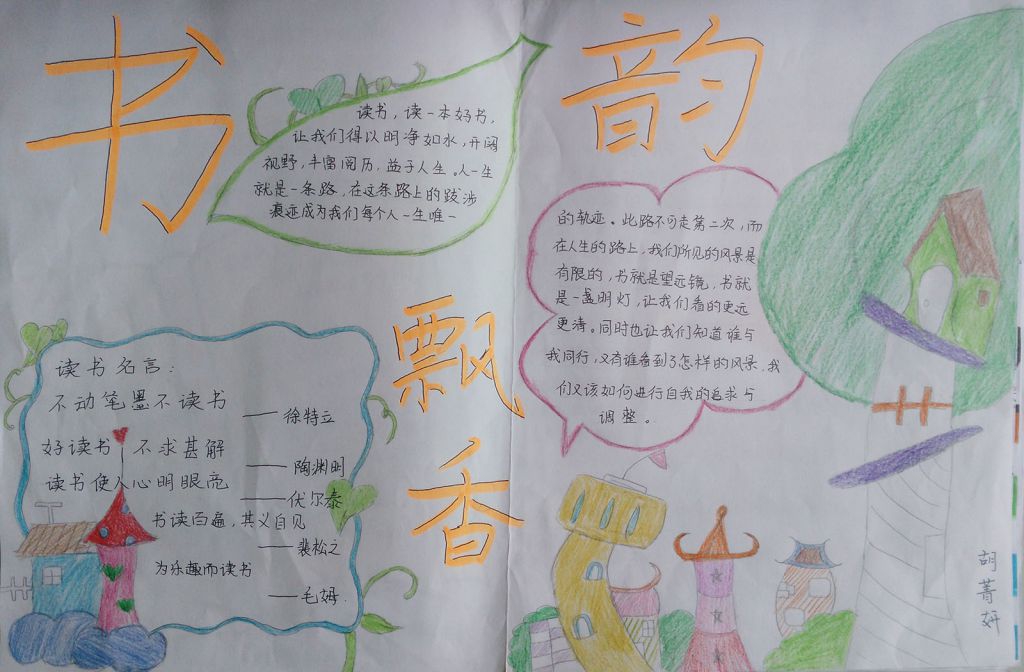 书韵
飘香
读书，读一本好书，
让我们得以明净如水，开阔
视野，丰富阅历，益于人生。人一生
就是一条路，在这条路上的跋涉
痕迹成为我们每个人一生唯一
的轨迹。此路不可走第二次，而
在人生的路上，我们所见的风景是
有限的，书就是望远镜，书就
是一盏明灯，让我们看的更远
更清。同时也让我们知道谁与
我同行，又有谁看到了怎样的风景，我
们又该如何进行自我的追求与
调整。
读书名言：
不动笔墨不读书
——徐特立
好读书 不求甚解
——陶渊明
读书使人心明眼亮
——伏尔泰
书读百遍，其义自见
——裴松之
为乐趣而读书
——毛姆.
胡菁妍